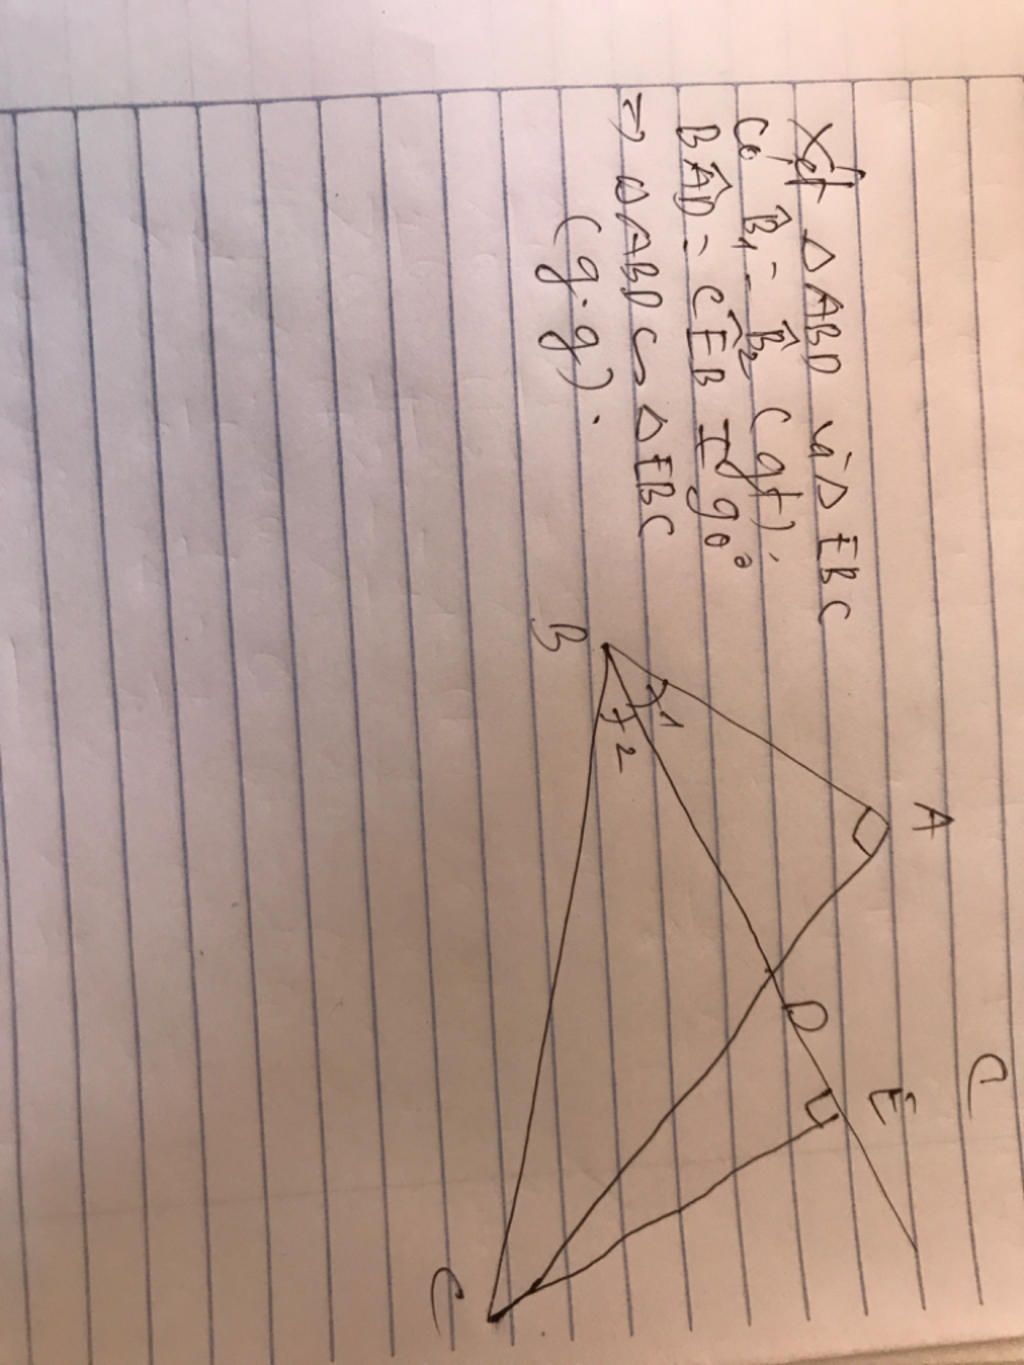 Xét △ABD và △EBC
Có B̂₁ = B̂₂ (gt).
BÂD = CÊB = 90°
=> △ABD ∽ △EBC
(g.g).
A
B
1
2
D
E
C
C